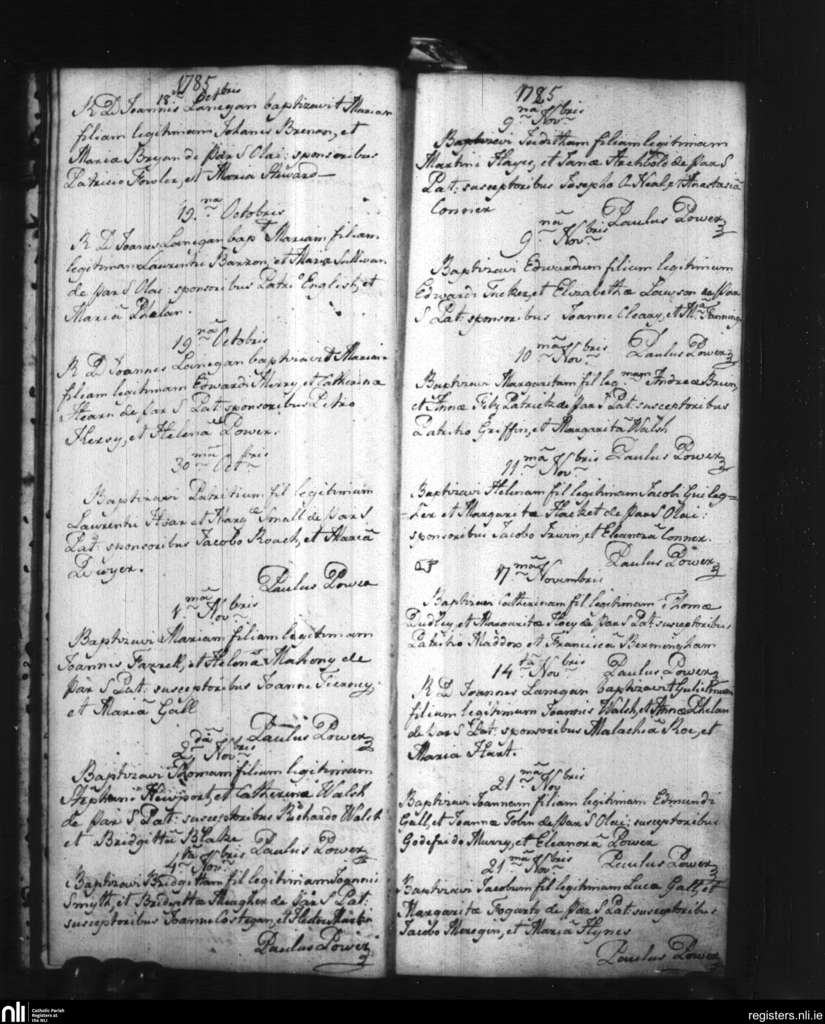 1785
18 Octbris
R D Joannis Lanegan baptizavit Mariam
filiam legitimam Johanis Brenan, et
Mariæ Bryan de Par S Olai: sponsoribus
Patricio Fowler, et Maria Steward
19.na Octobris
R D Joanes Lanegan bapt Mariam filiam
legitimam Laurentii Barron, et Mariæ Sullivan
de Par S Olai. sponsoribus Patri° English, et
Mariâ Phelan.
19 na Octobris
R D Joannes Lanegan baptizavit Mariam
filiam legitimam Edwardi Merry, et Catherinæ
Hearn de Par S Pat: sponsoribus Petro
Kersy, et Helenâ Power.
30 ma Octbris
Baptizavi Patritium fil legitimum
Laurentii Hoar et Marg Small de Par S
Pat: sponsoribus Jacobo Roach, et Mariâ
Dwyer.
Paulus Power
1 ma Novbris
Baptizavi Mariam filiam legitimam
Joannis Farrell, et Helenæ Mahony de
Par S Pat: susceptoribus Joanne Tierney,
et Mariâ Gall
Paulus Power
2 da Novbris
Baptizavi Thomam filium legitimum
Stephani Newport, et Catherinæ Walsh
de Par S Pat: susceptoribus Richardo Walsh
et Bridgittâ Blake Paulus Power
4 ta Novbris
Baptizavi Bridgittam fil legitimam Joannis
Smyth, et Bridgittæ Meagher de Par S Pat:
susceptoribus Joanne Costegan, et
Paulus Power
1785
9 na Novbris
Baptizavi Juditham filiam legitimam
Martini Hayes, et Janæ Archbold de Par S
Pat: susceptoribus Josepho O Neal, et Anastasiâ
Conner
Paulus Power
9 na Novbris
Baptizavi Edwardum filium legitimum
Edwardi Tucker, et Elizabethæ Lawson de Par
S Pat sponsoribus Joanne Cleary, et Mâ Fanning
Paulus Power
10 ma Novbris
Baptizavi Margaritam fil leg:mam Andreæ Brien,
et Annæ Fitz Patrick de Par S Pat: susceptoribus
Patritio Griffin, et Margaritâ Walsh
Paulus Power
11 ma Novbris
Baptizavi Helenam fil legitimam Jacobi
et Margaritæ Hacket de Par S Olai:
sponsoribus Jacobo Irwin, et Eleanorâ Conner.
Paulus Power
17 ma Novembris
Baptizavi Catherinam fil legitimam Thomæ
Dudley, et Margaritæ Hoey de Par S Pat: susceptoribus
Patritio Maddox et Franciscâ Bermingham
Paulus Power
14 ta Novbris
R D Joannes Lanegan baptizavit Gulielmum
filium legitimum Joannis Walsh, et Annæ Phelan
de Par S Pat: sponsoribus Malachiâ Roe, et
Maria Hart.
21 ma Novbris
Baptizavi Joannam filiam legitimam Edmundi
Gall, et Joannæ Tobin de Par S Olai: susceptoribus
Godefrido Murry, et Eleanorâ Power
Paulus Power
21 ma Novbris
Baptizavi Jacobum fil legitimum Lucæ Gall, et
Margaritæ Fogarty de Par S Pat susceptoribus
Jacobo Meregin, et Mariâ Hynes
Paulus Power
nli
Catholic Parish
Registers at
the NLI
registers.nli.ie